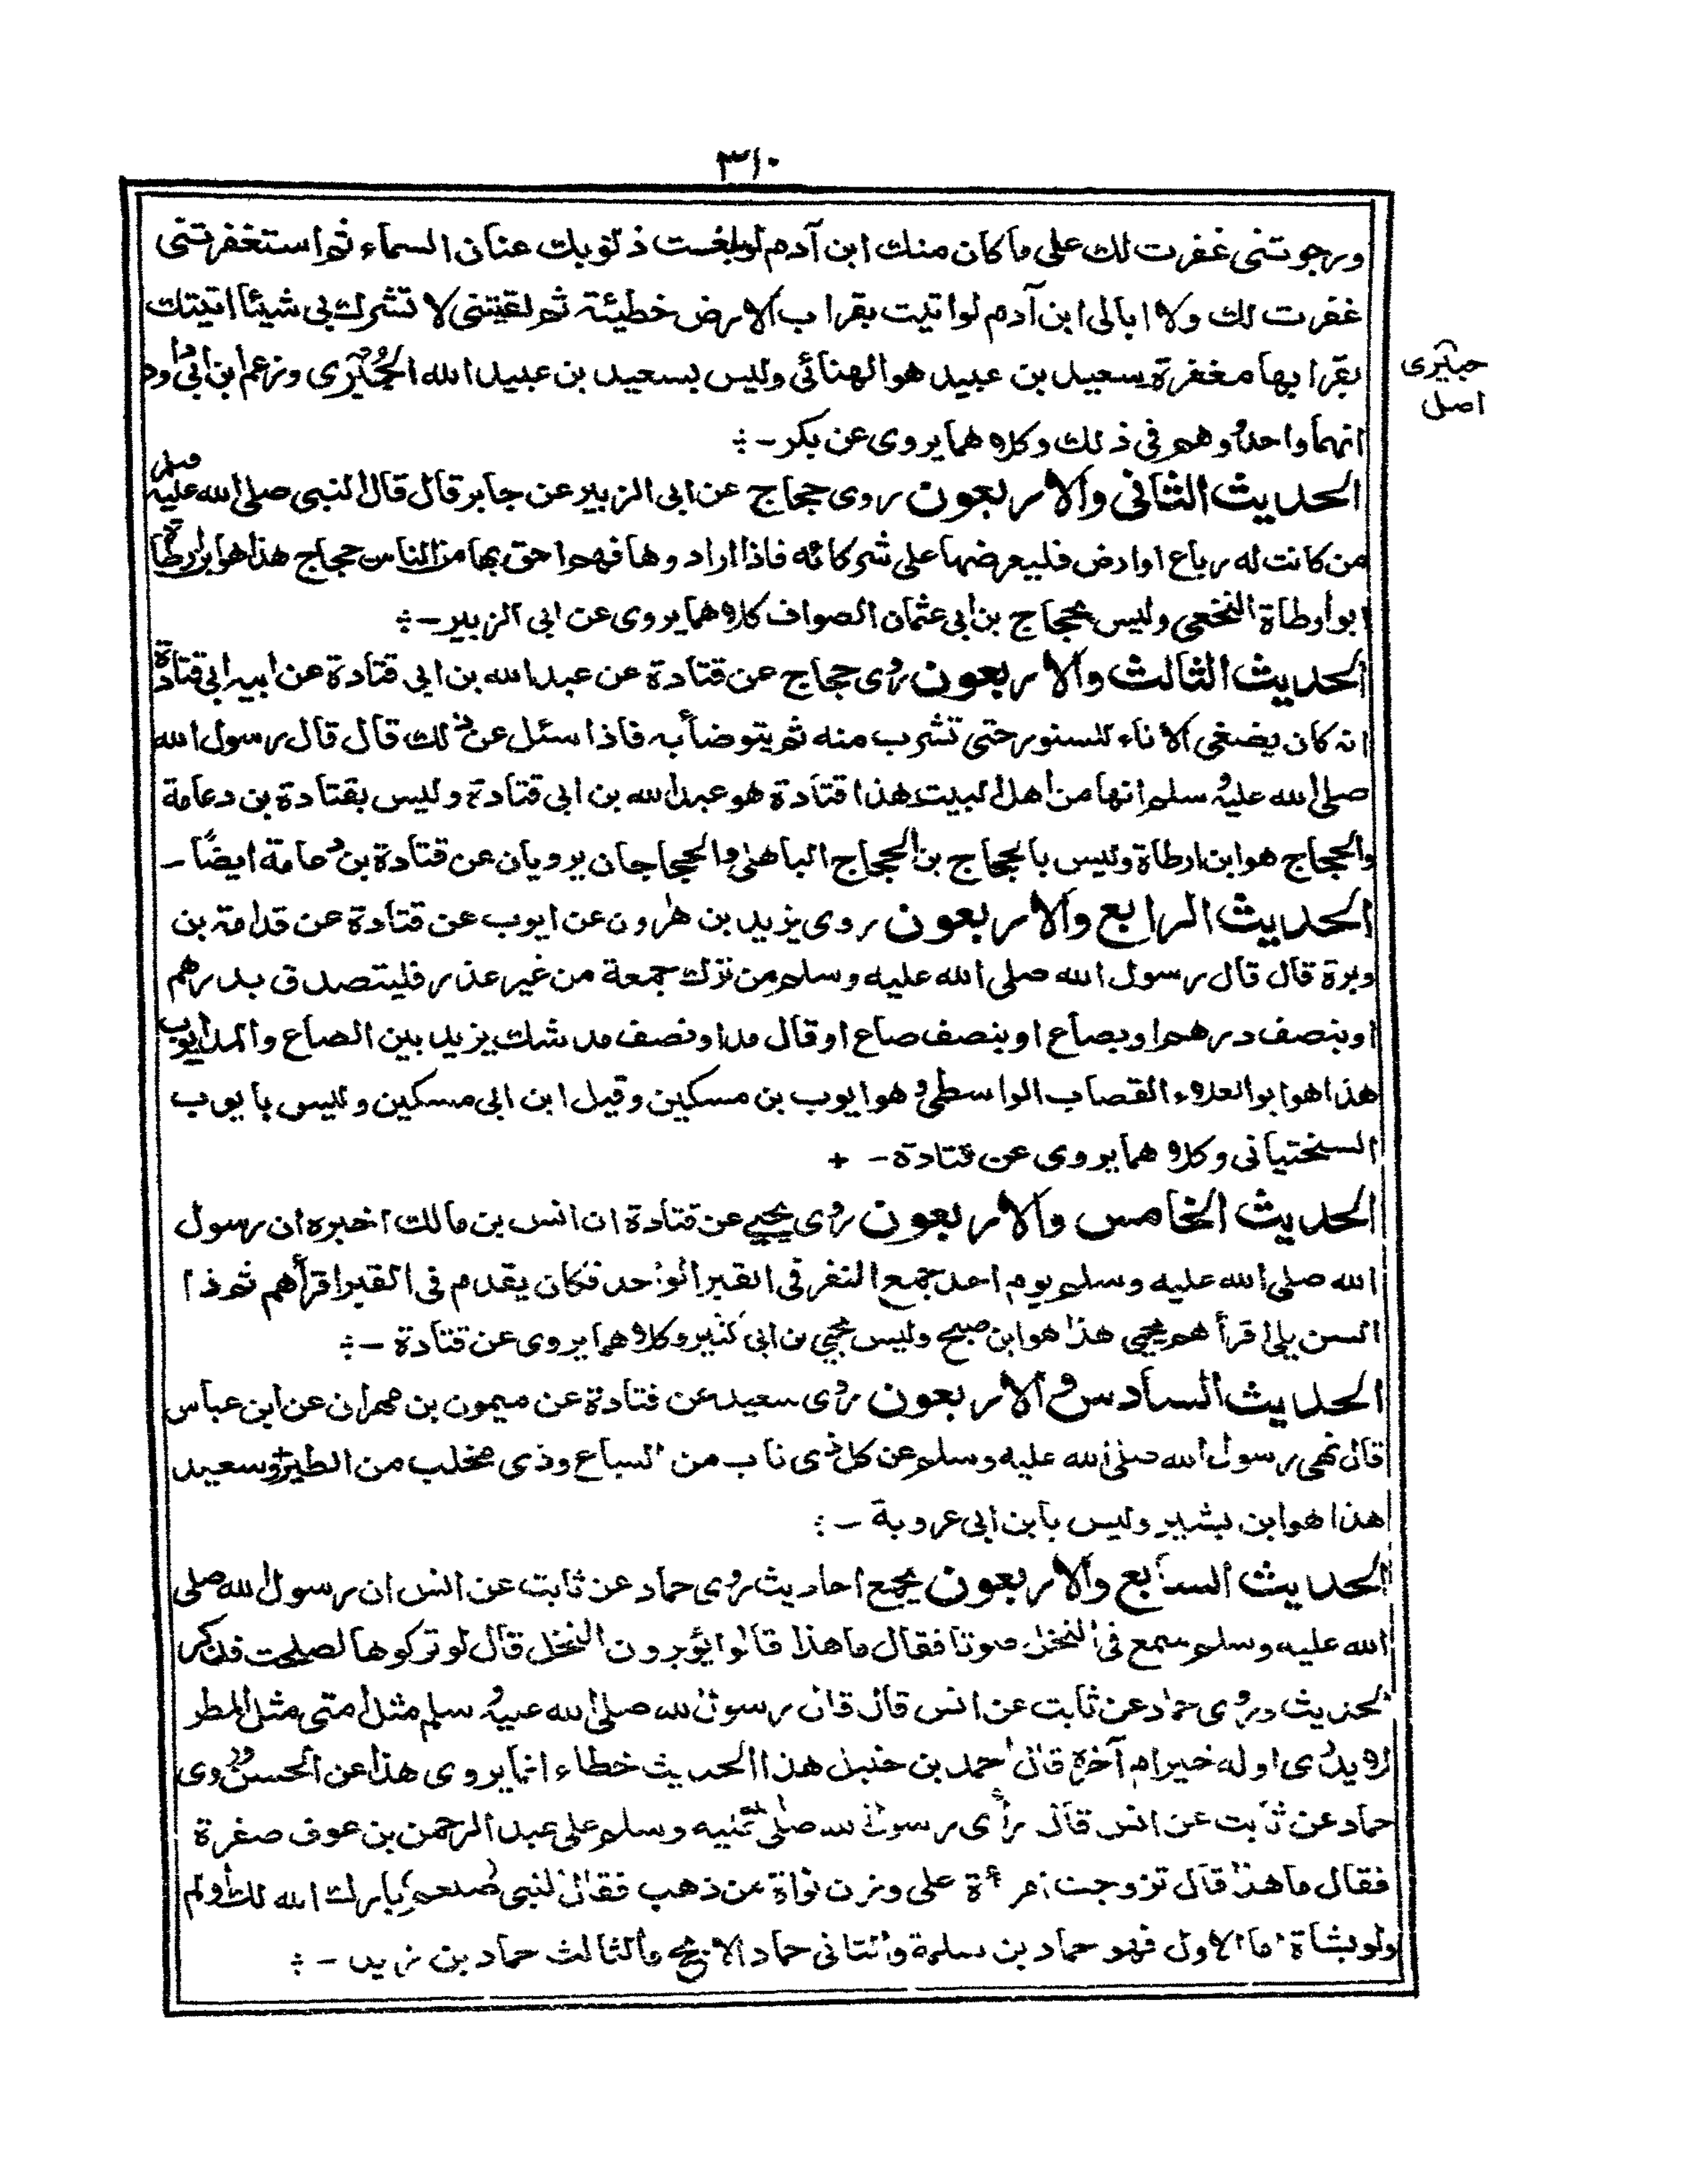 ٣١٠
ورجوتنى غفرت لك على ما كان منك ابن آدم لو بلغت ذنوبك عنان السماء ثم استغفرتنى
غفرت لك ولا ابالى ابن آدم لو اتيت بقراب الارض خطيئة ثم لقيتنى لا تشرك بى شيئا اتيتك
بقرابها مغفرة سعيد بن عبيد هو الهنائى وليس بسعيد بن عبيد الله الجُبَيْرى وزعم ابن ابى داود
حبيرى
اصل
انهما واحد وهم فى ذلك وكلاهما يروى عن بكر ــ :
الحديث الثانى والاربعون روى حجاج عن ابى الزبير عن جابر قال قال النبى صلى الله عليه وسلم
من كانت له رباع او ارض فليعرضها على شركائه فاذا ارادوها فهم احق بها من الناس حجاج هذا هو ابن ارطاة
ابو ارطاة النخعى وليس بحجاج بن ابى عثمان الصواف كلاهما يروى عن ابى الزبير ــ :
الحديث الثالث والاربعون روى حجاج عن قتادة عن عبد الله بن ابى قتادة عن ابيه ابى قتادة
انه كان يضغى الاناء للسنور حتى تشرب منه ثم يتوضأ به فاذا سئل عن ذلك قال قال رسول الله
صلى الله عليه وسلم انها من اهل البيت هذا قتادة هو عبد الله بن ابى قتادة وليس بقتادة بن دعامة
والحجاج هو ابن ارطاة وليس بالحجاج بن الحجاج الباهلى والحجاجان يرويان عن قتادة بن دعامة ايضًا ــ
الحديث الرابع والاربعون روى يزيد بن هٰرون عن ايوب عن قتادة عن قدامة بن
وبرة قال قال رسول الله صلى الله عليه وسلم من ترك جمعة من غير عذر فليتصدق بدرهم
او بنصف درهم او بصاع او بنصف صاع او قال مد او نصف مد شك يزيد بين الصاع والمد ايوب
هذا هو ابو العلاء القصاب الواسطى وهو ايوب بن مسكين وقيل ابن ابى مسكين وليس بايوب
السختيانى وكلاهما يروى عن قتادة ــ +
الحديث الخامس والاربعون روى يحيى عن قتادة ان انس بن مالك اخبره ان رسول
الله صلى الله عليه وسلم يوم احد جمع النفر فى القبر الواحد فكان يقدم فى القبر اقرأهم ثم ذا
السن يلى اقرأهم يحيى هذا هو ابن صبح وليس يحيى بن ابى كثير وكلاهما يروى عن قتادة ــ :
الحديث السادس والاربعون روى سعيد عن قتادة عن ميمون بن مهران عن ابن عباس
قال نهى رسول الله صلى الله عليه وسلم عن كل ذى ناب من السباع وذى مخلب من الطير + وسعيد
هذا هو ابن بشير وليس بابن ابى عروبة ــ :
الحديث السابع والاربعون يجمع احاديث روى حماد عن ثابت عن انس ان رسول الله صلى
الله عليه وسلم سمع فى النخل صوتا فقال ما هذا قالوا يؤبرون النخل قال لو تركوها لصلحت فذكر
الحديث وروى حماد عن ثابت عن انس قال قال رسول الله صلى الله عليه وسلم مثل امتى مثل المطر
لا يدرى اوله خير ام آخره قال احمد بن حنبل هذا الحديث خطاء انما يروى هذا عن الحسن وروى
حماد عن ثابت عن انس قال رأى رسول الله صلى الله عليه وسلم على عبد الرحمن بن عوف صفرة
فقال ما هذا قال تزوجت امرأة على وزن نواة من ذهب فقال النبى صلعم بارك الله لك اولم
ولو بشاة اما الاول فهو حماد بن سلمة والثانى حماد الابح والثالث حماد بن زيد ــ :